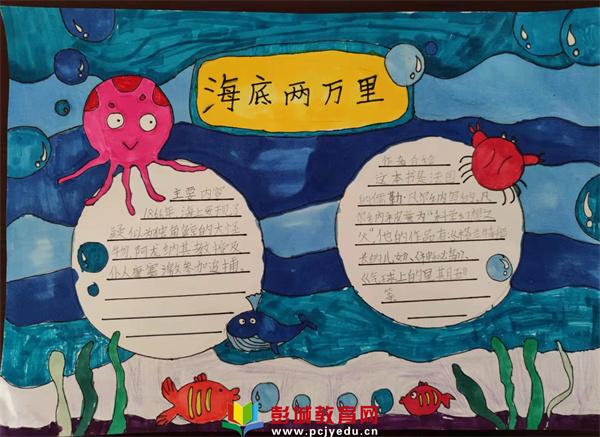 海底两万里
主要内容
1866年,海上发现了
疑似为独角鲸的大怪
物,阿龙纳斯教授及
仆人康塞激参加追捕。
作者介绍
这本书是法国
的儒勒·凡尔纳写的,凡
尔纳被誉为“科学幻想之
父”他的作品有《格兰特船
长的儿女》、《神秘岛》、
《气球上的星期五》
等
彭城教育网
www.pcjyedu.cn